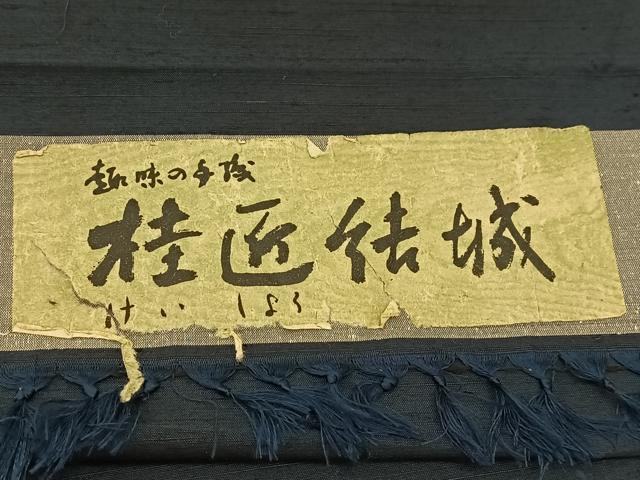 趣味の手織
桂匠結城
けいしょう